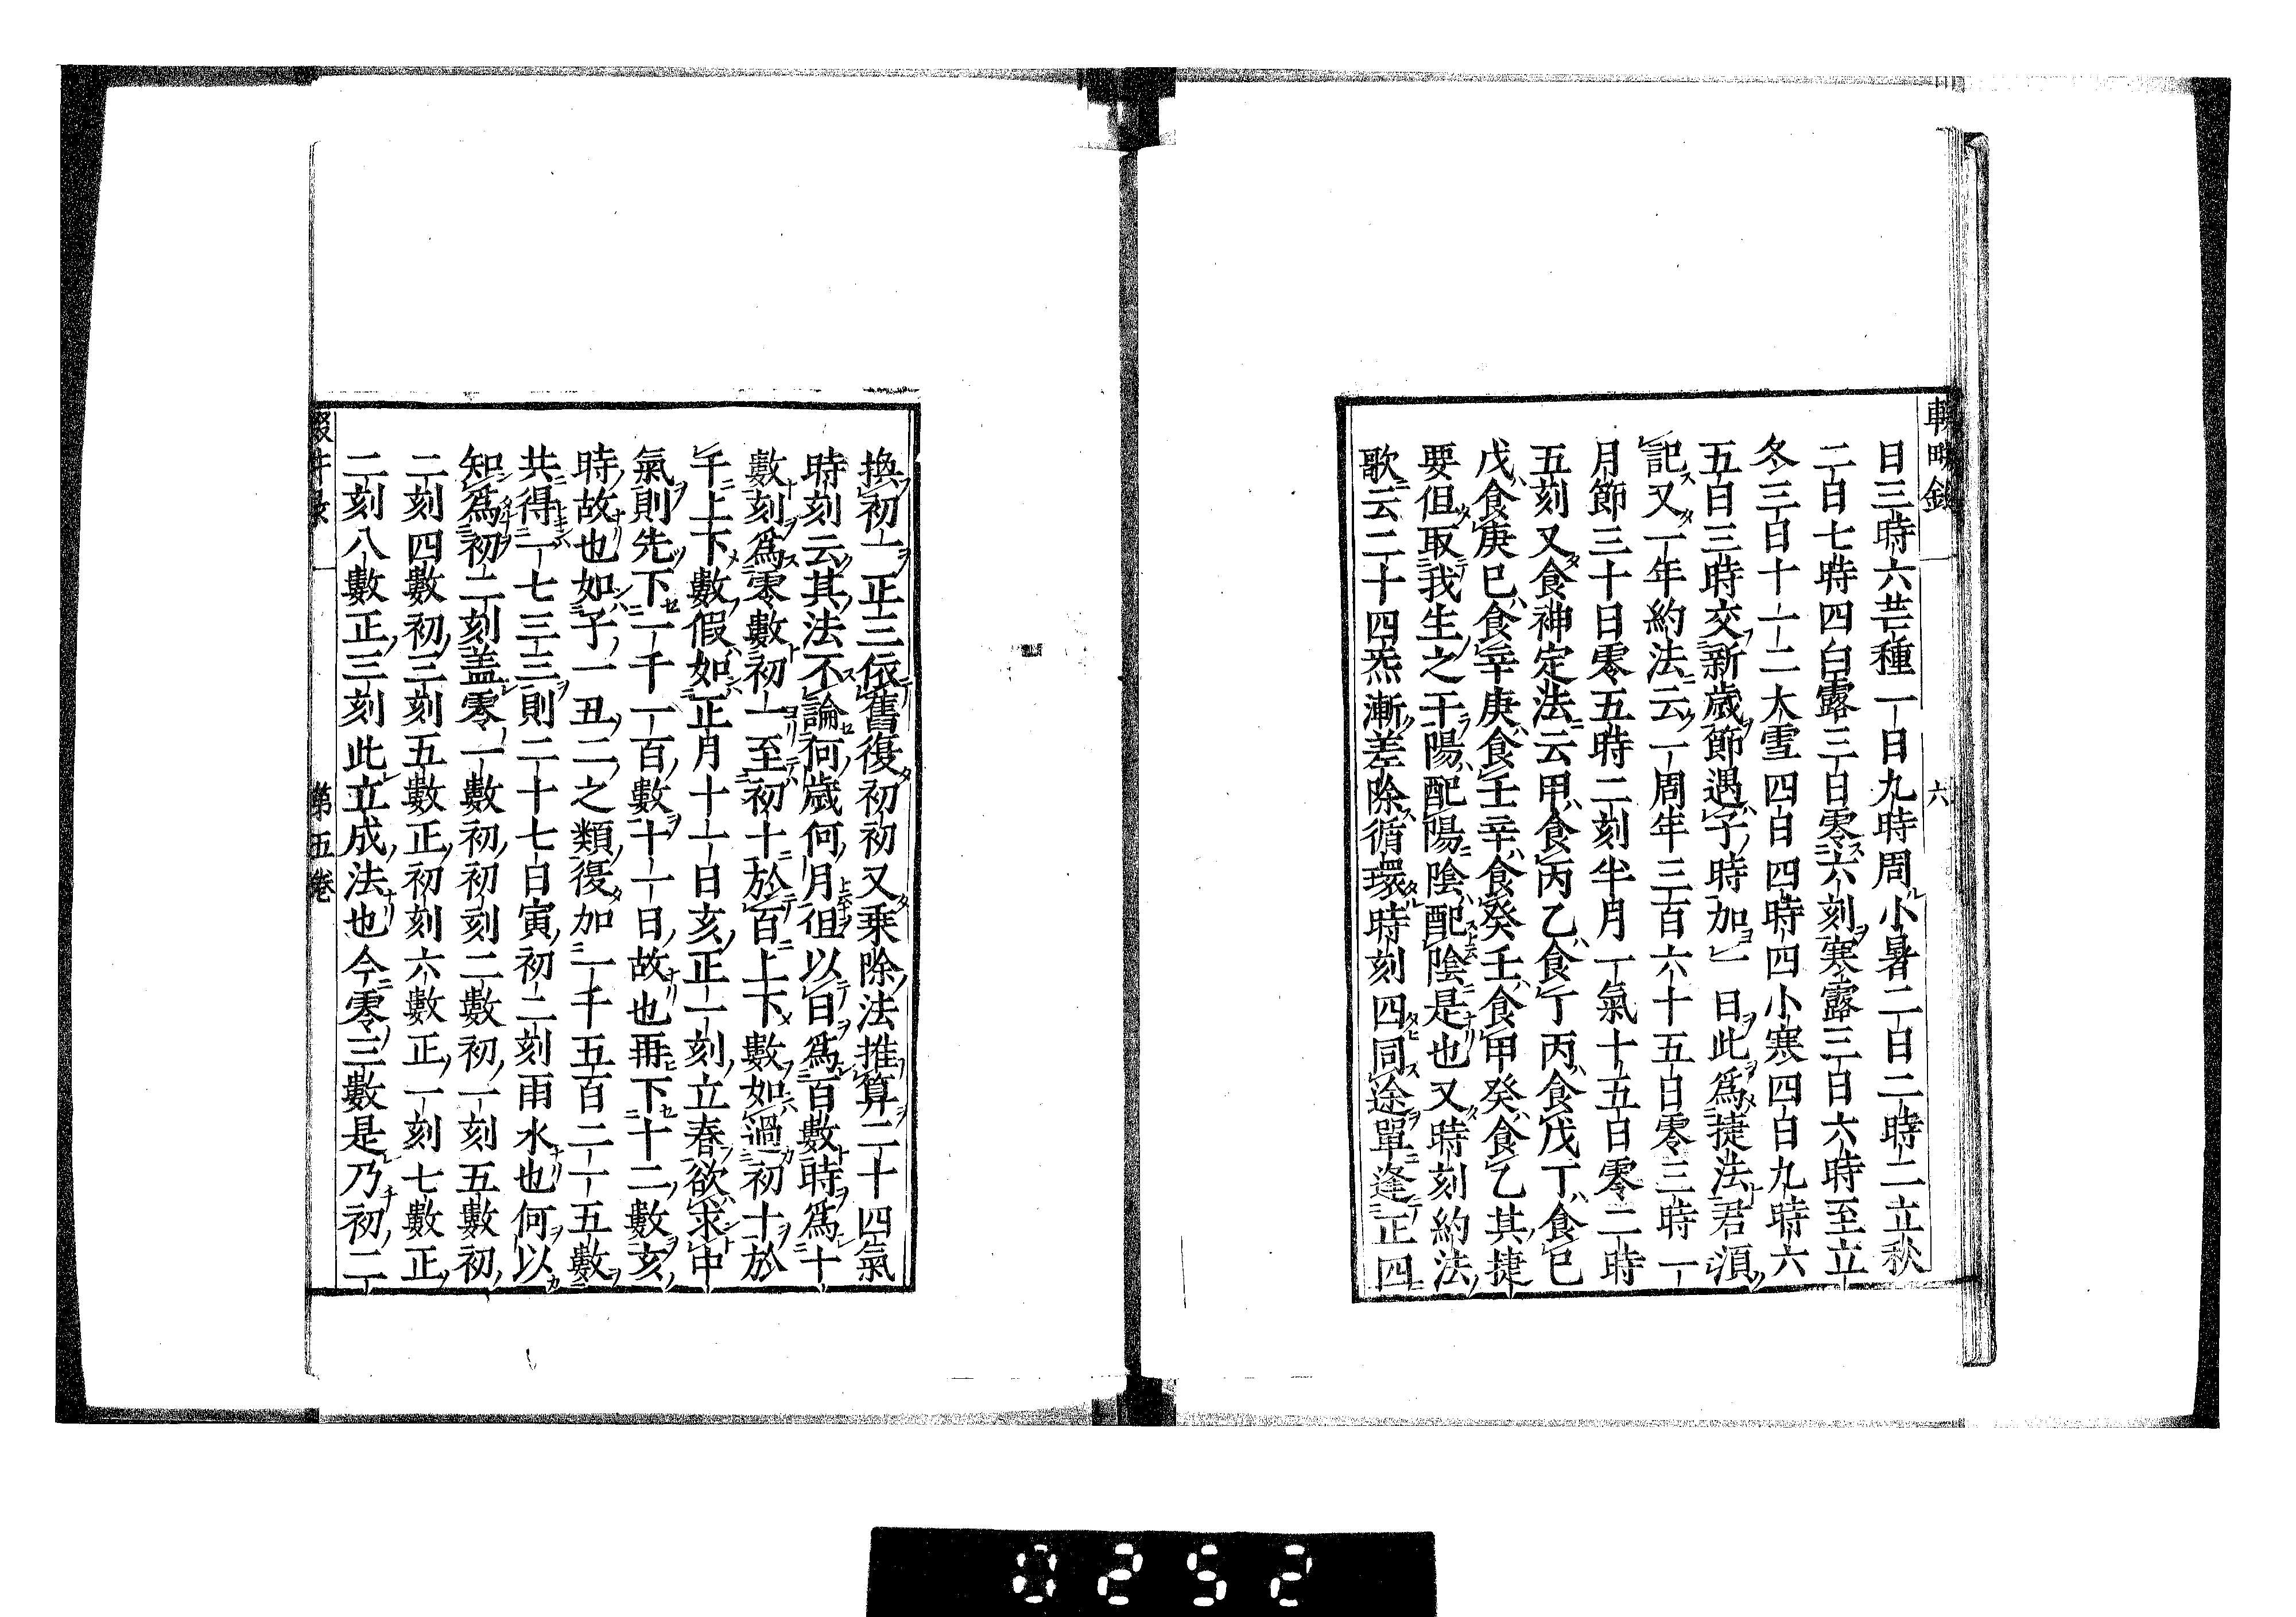 日三時六芒種一日九時周小暑二日二時二立秋
二日七時四白露三日零六刻寒露三日六時至立
冬三日十一二大雪四日四時四小寒四日九時六
五日三時交新歲節遇子時加一日此爲捷法君須
記又一年約法云一周年三百六十五日零三時一
月節三十日零五時二刻半月一氣十五日零二時
五刻又食神定法云甲食丙乙食丁丙食戊丁食己
戊食庚己食辛庚食壬辛食癸壬食甲癸食乙其捷
要但取我生之干陽配陽陰配陰是也又時刻約法
歌云二十四炁漸差除循環時刻四同途單逢正四
換初一正三依舊復初初又乗除法推算二十四氣
時刻云其法不論何歲何月但以日爲百數時爲十
數刻爲零數初一至初十於百上下數如過初十於
千上下數假如正月十一日亥正一刻立春欲求中
氣則先下一千一百數十一日故也再下十二數亥
時故也如子一丑二之類復加一千五百二十五數
共得二千七三三則二十七日寅初二刻雨水也何以
知爲初二刻盖零一數初初刻二數初一刻五數初
二刻四數初三刻五數正初刻六數正一刻七數正
二刻八數正三刻此立成法也今零三數是乃初二
六
第五卷
0252